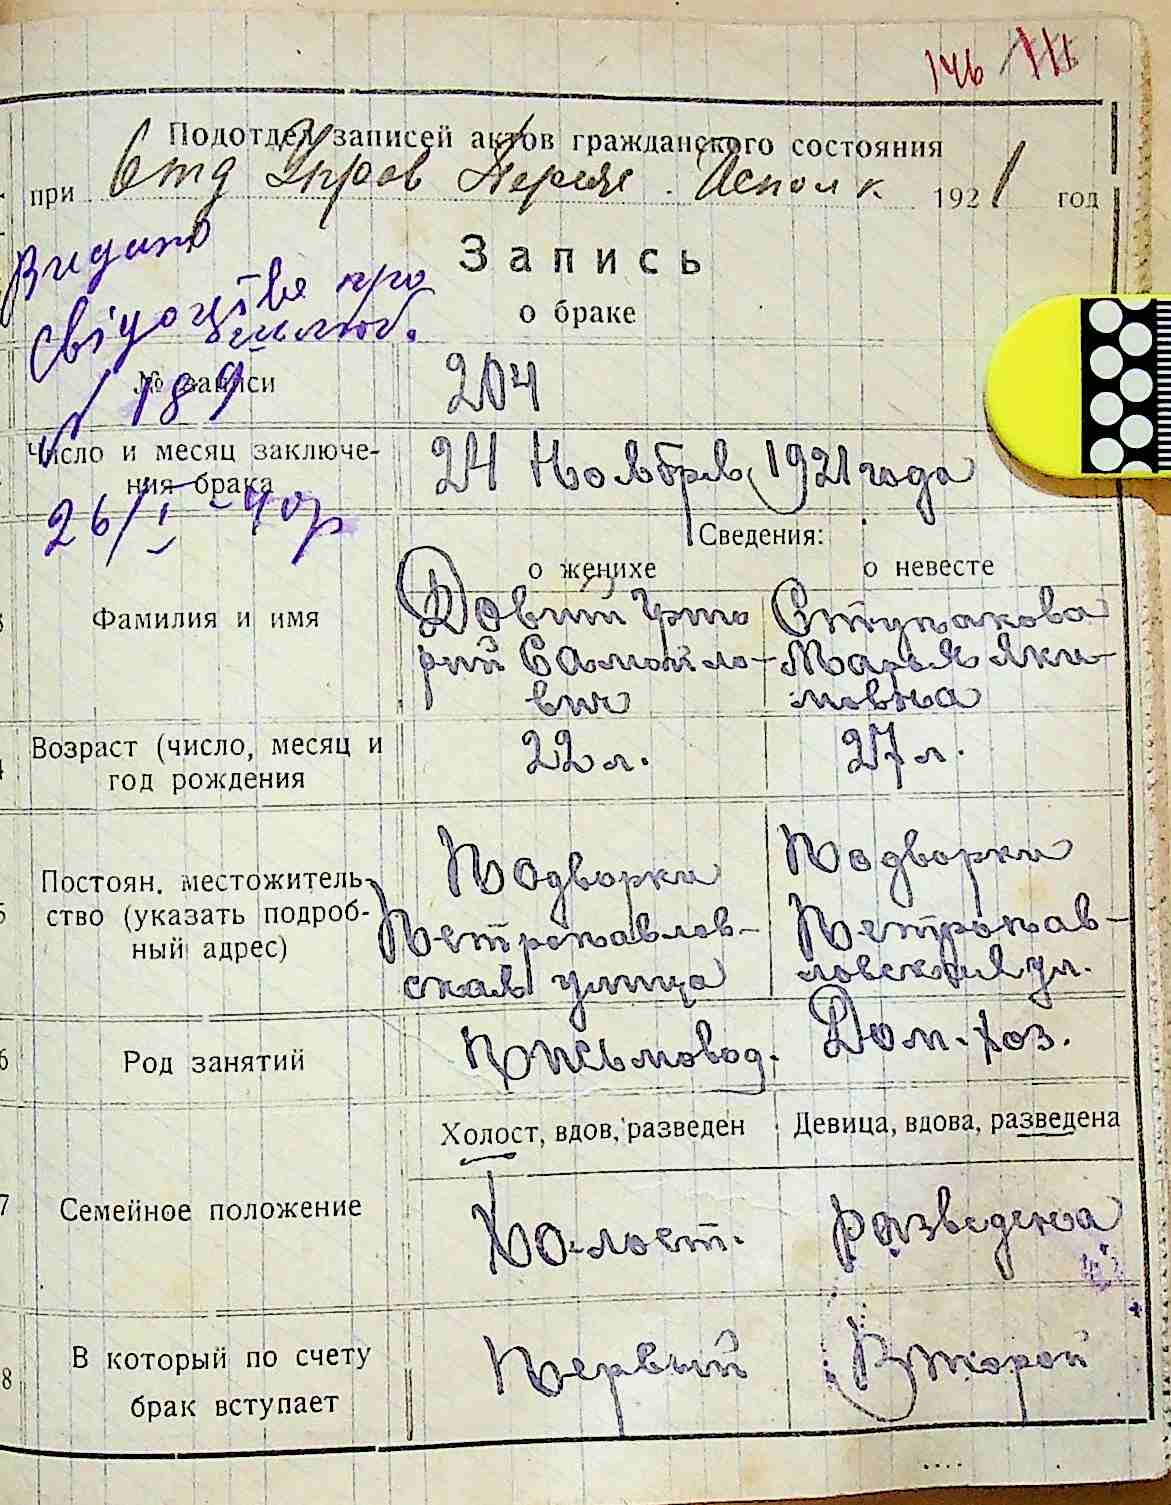 146
Подотдел записей актов гражданского состояния
при Отд Управ Исполк 1921 год
Видано
свідоцтво про
шлюб.
№ 189
26/I - 40р
Запись
о браке
№ записи 204
Число и месяц заключе-
ния брака 24 Ноября 1921 года
Сведения:
о женихе о невесте
Фамилия и имя
Довгий Григо Ступакова
рий Самойло- Марья Яки-
вич мовна
Возраст (число, месяц и
год рождения
22 л. 27 л.
Постоян. местожитель-
ство (указать подроб-
ный адрес)
Подворки Подворки
Петропавлов- Петропав-
ская улица ловская ул.
6 Род занятий Письмовод. Дом. хоз.
Холост, вдов, разведен Девица, вдова, разведена
7 Семейное положение Холост. разведена
8 В который по счету
брак вступает
Первый Второй